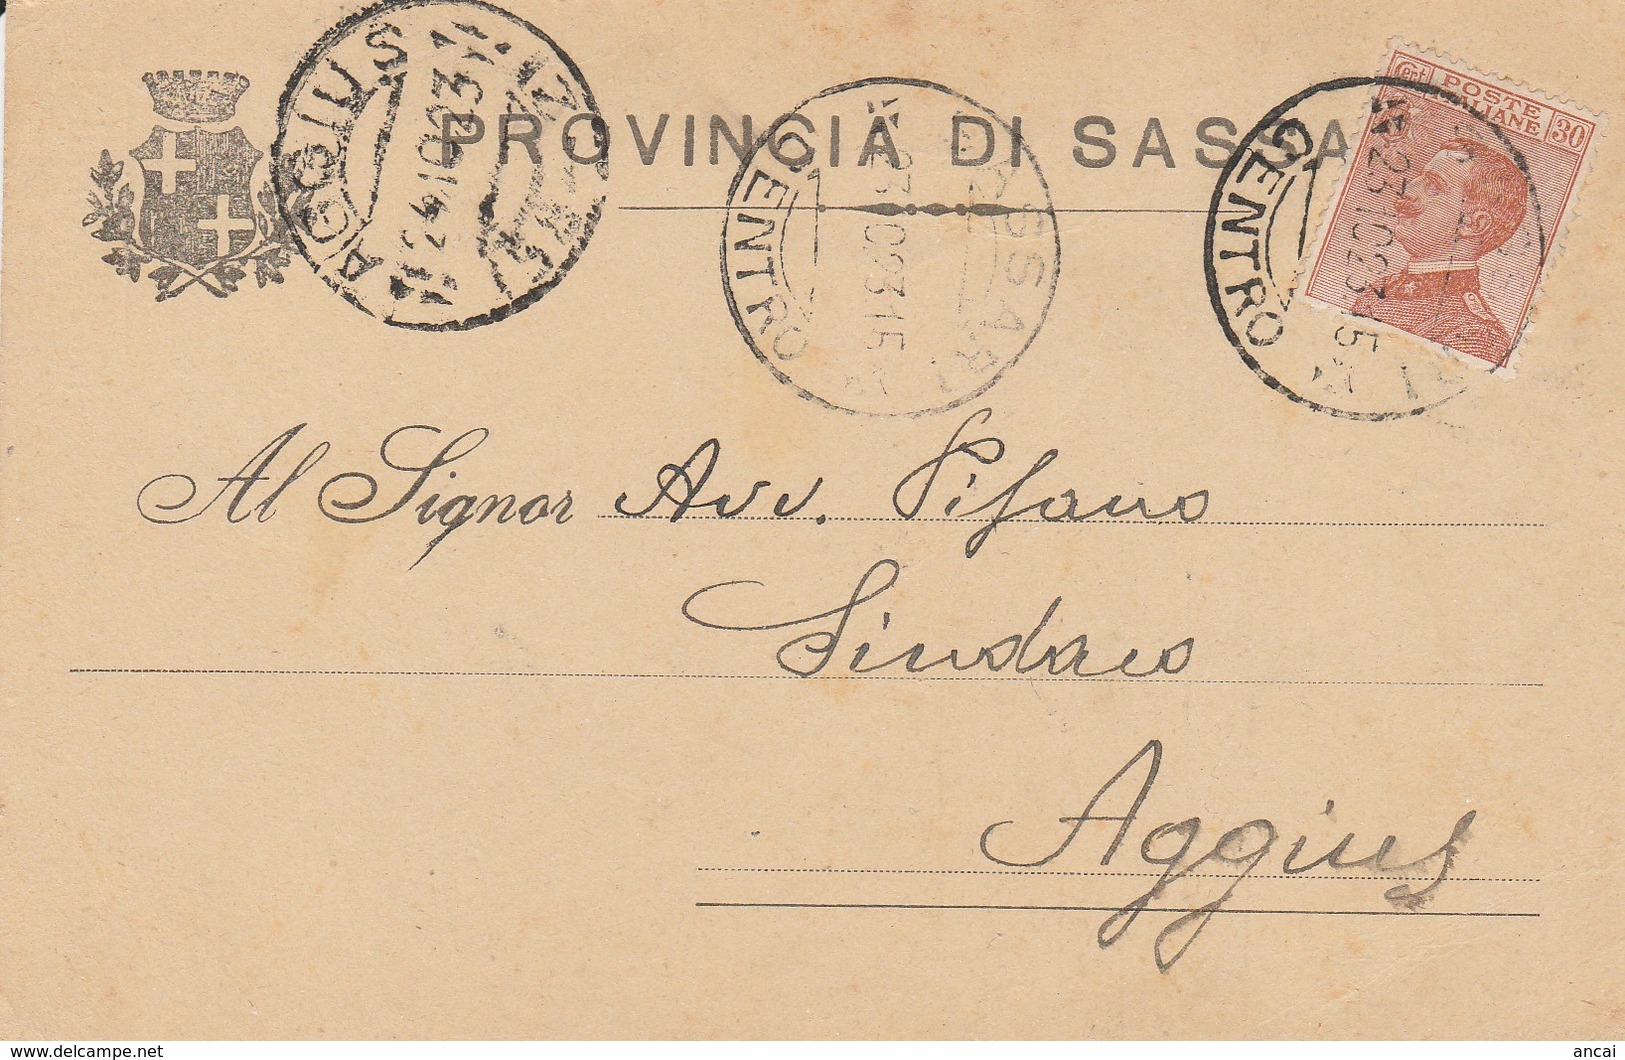 AGGIUS
24.10.23
PROVINCIA DI SASSA
SASSARI
CENTRO
23.10.23.15
SASSARI
CENTRO
23.10.23.15
Cent
POSTE
ITALIANE
30
Al Signor Avv. Pisano
Sindaco
Aggius
www.delcampe.net
ancai